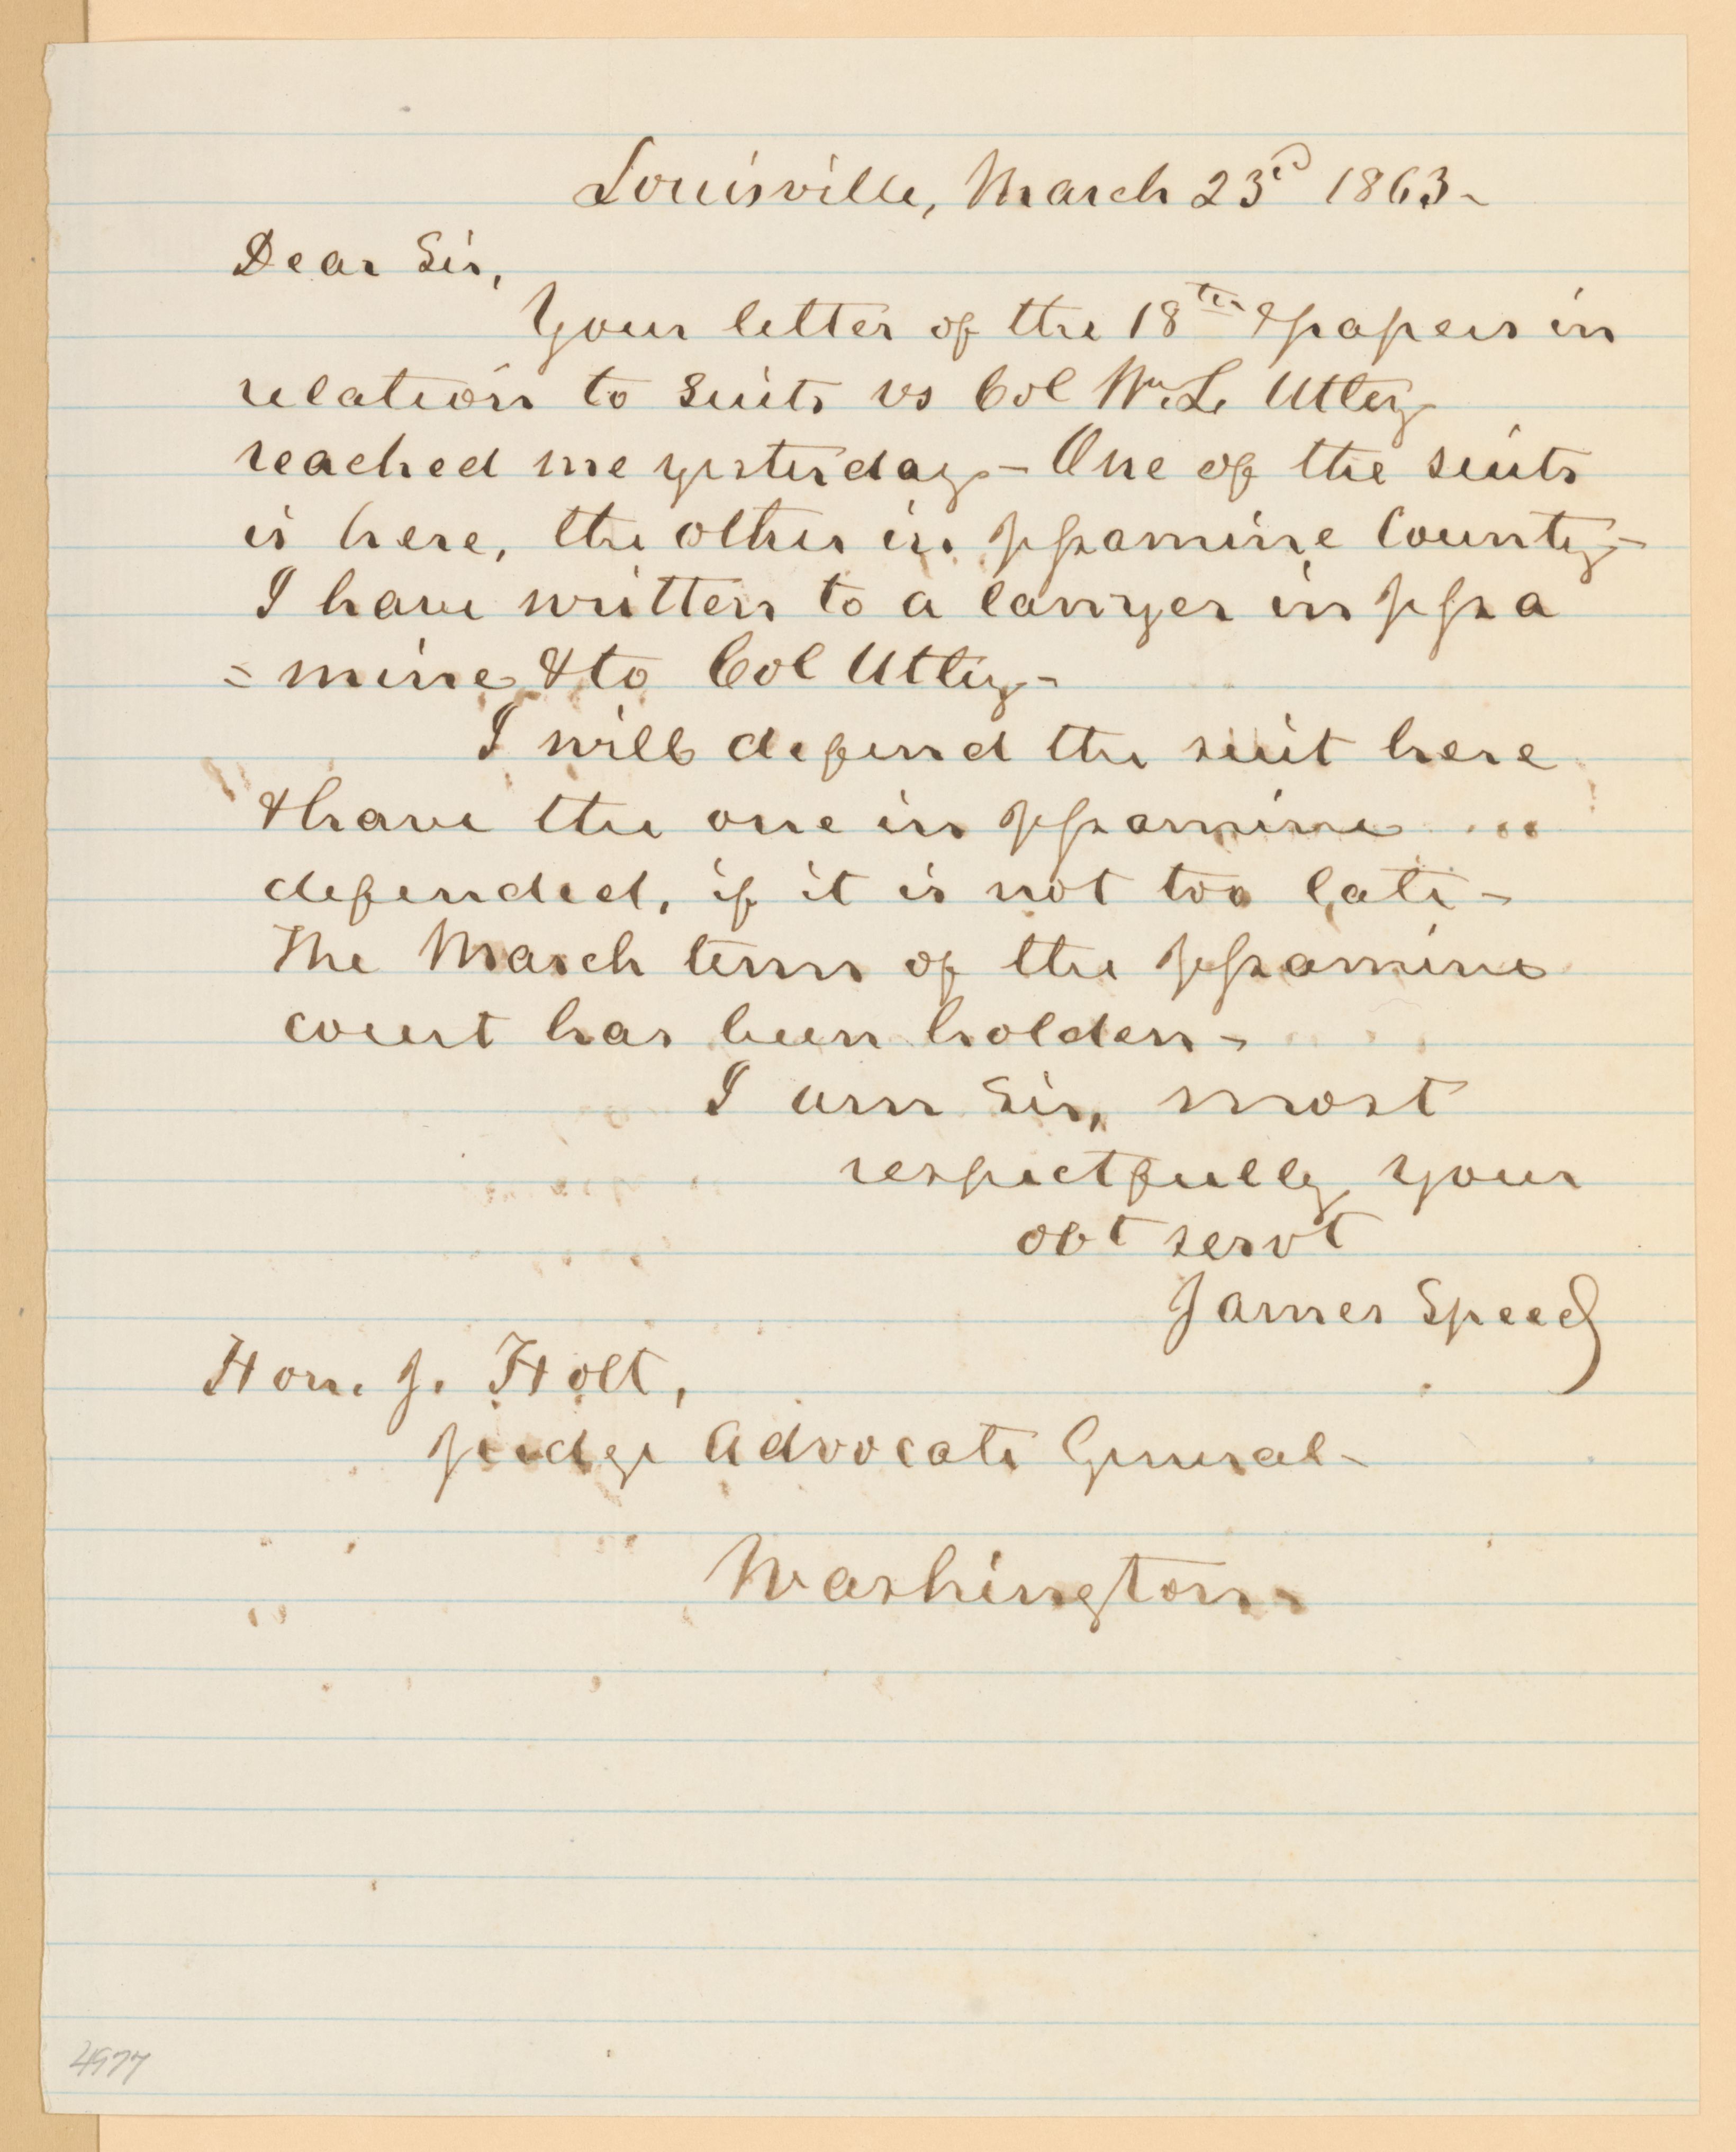 Louisville, March 23d 1863-
Dear Sir,
Your letter of the 18th & papers in
relation to suits vs Col Wm. L. Utley
reached me yesterday - One of the suits
is here, the other in Jessamine County -
I have written to a lawyer in Jessa
=mine & to Col Utley -
I will defend the suit here
& have the one in Jessamine
defended, if it is not too late -
The March term of the Jessamine
court has been holden -
I am Sir, most
respectfully your
obt servt
James Speed
Hon. J. Holt,
Judge Advocate General -
Washington
4977